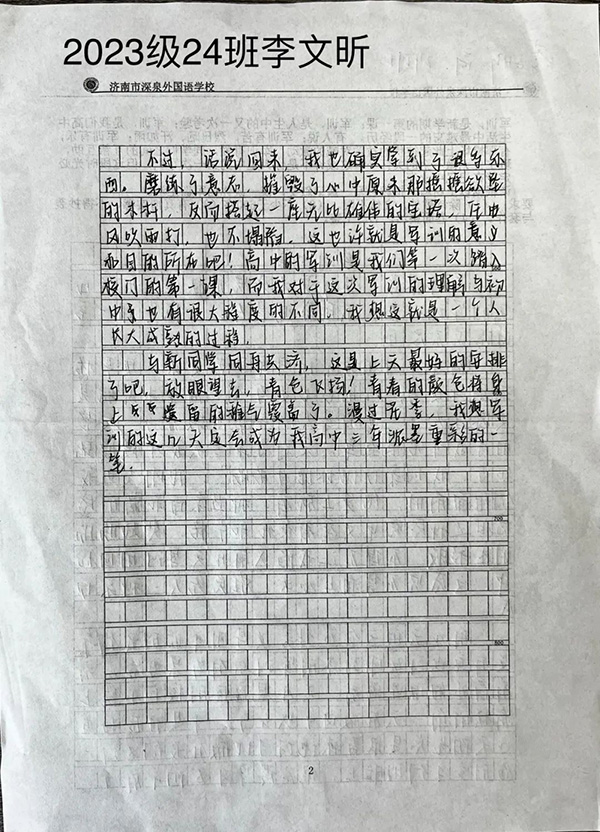 2023级24班李文昕
济南市深泉外国语学校
不过，话说回来，我也确实学到了很多东
西。磨练了意志，摧毁了心中原来那摇摇欲坠
的木杆，反而搭起一座无比雄伟的宝塔，任由
风吹雨打，也不塌陷。这也许就是军训的意义
和目的所在吧！高中的军训是我们第一次踏入
校门的第一课，而我对于这次军训的理解与初
中多也有很大程度的不同，我想这就是一个人
长大成熟的过程。
与新同学同舟共济，这是上天最好的安排
了吧，放眼望去，青色飞扬！青春的颜色将身
上仅留的稚气覆盖了。漫过花季，我想军
训的这几天定会成为我高中三年浓墨重彩的一
笔。
700
800
2